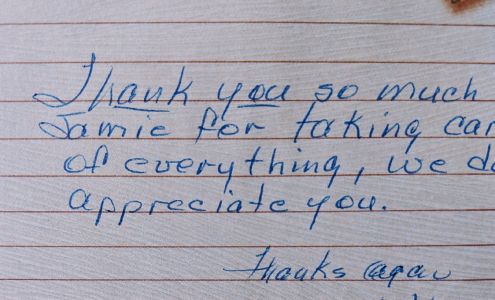 Thank you so much
Jamie for taking car
of everything, we do
appreciate you.
Thanks again